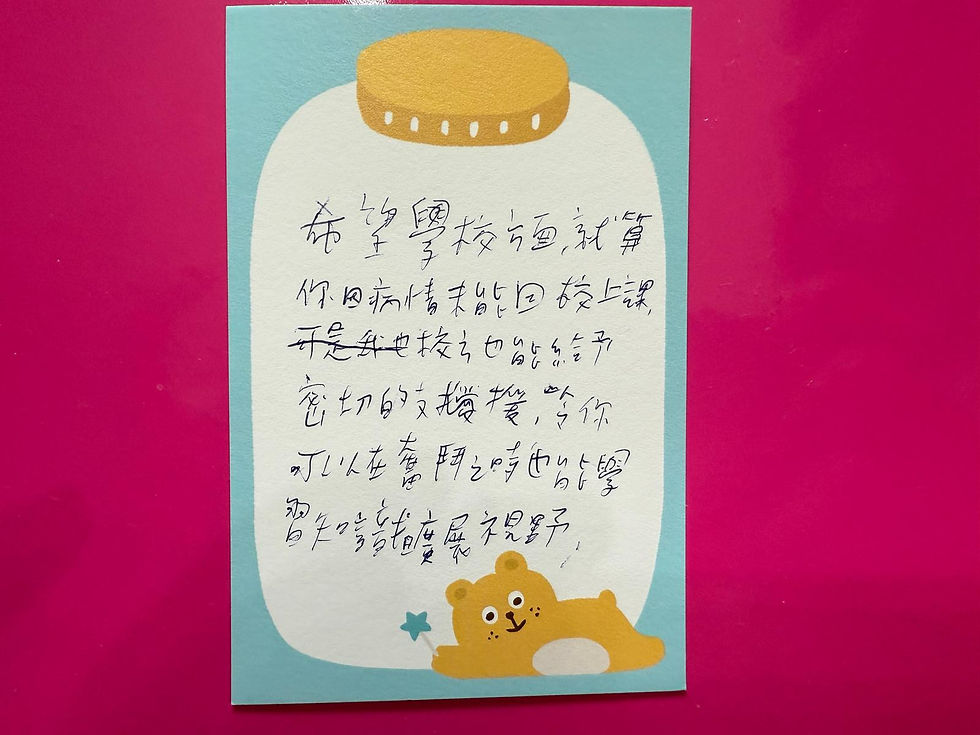 希望學校方面,就算
你因病情未能回校上課,
可是我也校方也能給予
密切的支援,令你
可以在奮鬥之時也能學
習知識擴展視野.